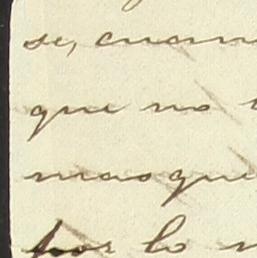 se, cuan
que no
mas que
por lo